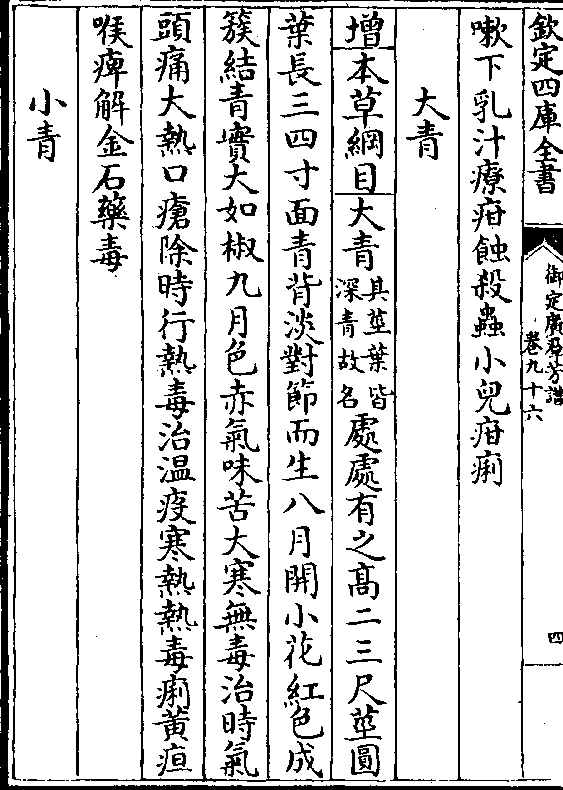 欽定四庫全書
御定廣羣芳譜
卷九十六
四
嗽下乳汁療疳蝕殺蟲小兒疳痢
大青
增本草綱目大青其莖葉皆深青故名處處有之高二三尺莖圓
葉長三四寸面青背淡對節而生八月開小花紅色成
簇結青實大如椒九月色赤氣味苦大寒無毒治時氣
頭痛大熱口瘡除時行熱毒治温疫寒熱熱毒痢黃疸
喉痺解金石藥毒
小青